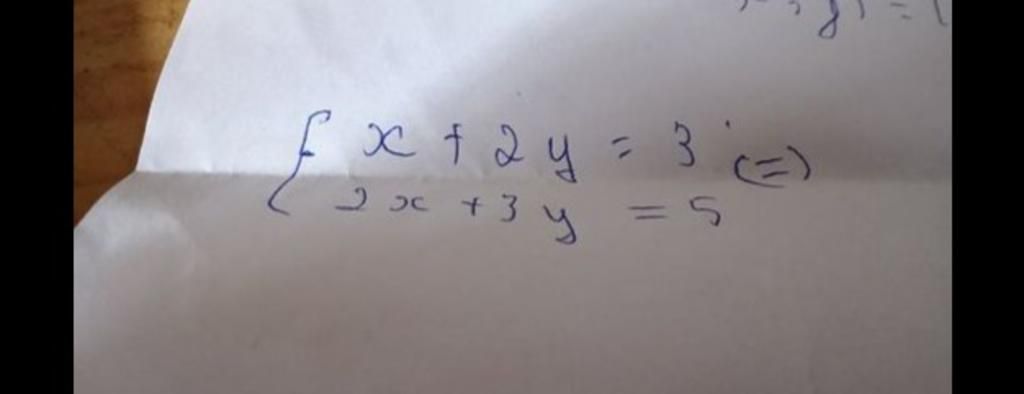 { x + 2y = 3 (=)
2x + 3y = 5